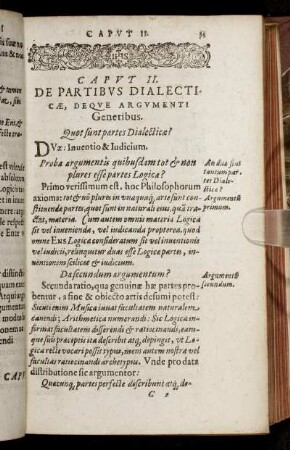 CAPVT II. 35
CAPVT II.
DE PARTIBVS DIALECTI-
CÆ, DEQVE ARGVMENTI
Generibus.
Quot sunt partes Dialecticæ?
DVæ: Inuentio & Iudicium.
Proba argumentis quibusdam tot & non
plures esse partes Logicæ?
An dua sint
tantum par
tes Diale-
ctica?
Argumentũ
primum.
Primo verissimum est, hoc Philosophorum
axioma: tot & nō plures in vna quaq, arte sunt con-
stituendæ partes, quot sunt in naturali eius, quã tra-
ctat, materia. Cum autem omnis materia Logica
sit vel inuenienda, vel iudicanda propterea, quod
omne Ens Logica consideratum sit vel inuentionis
vel iudicii, relinquitur duas esse Logicæ partes, in-
uentionem scilicet & iudicium.
Da secundum argumentum?
Argumentũ
secundum.
Secunda ratio, qua genuinæ hæ partes pro-
bentur, a fine & obiecto artis desumi potest:
Sicut enim Musica iuuat facultatem naturalem,
canendi; Arithmetica numerandi: Sic Logica in-
firmitas facultatem disserendi & ratiocinandi, eam-
que suis præceptis ita describit atq, depingit, vt Lo-
gica recte vocari possit typus, mens autem nostra vel
facultas ratiocinandi archetypus. Vnde pro data
distributione sic argumentor:
Quæcunq, partes perfecte describunt atq, de-
C 2